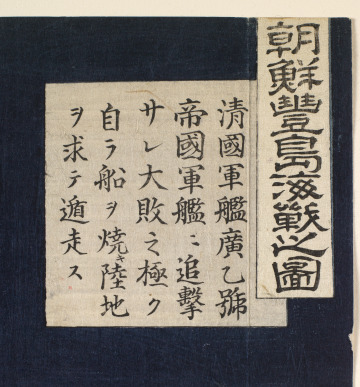 朝鮮豐島海戰之圖
清國軍艦廣乙號
帝國軍艦ニ追擊
サレ大敗之極ク
自ラ船ヲ燒き陸地
ヲ求テ遁走ス